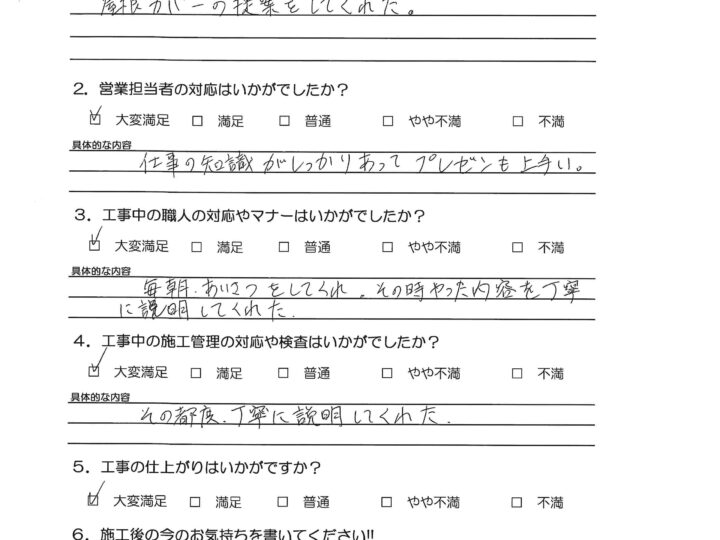 屋根カバーの提案をしてくれた。
2．営業担当者の対応はいかがでしたか？
☑ 大変満足 □ 満足 □ 普通 □ やや不満 □ 不満
具体的な内容
仕事の知識がしっかりあって プレゼンも上手い。
3．工事中の職人の対応やマナーはいかがでしたか？
☑ 大変満足 □ 満足 □ 普通 □ やや不満 □ 不満
具体的な内容
毎朝、あいさつをしてくれ、その時やった内容を丁寧
に説明してくれた.
4．工事中の施工管理の対応や検査はいかがでしたか？
☑ 大変満足 □ 満足 □ 普通 □ やや不満 □ 不満
具体的な内容
その都度、丁寧に説明してくれた.
5．工事の仕上がりはいかがですか？
☑ 大変満足 □ 満足 □ 普通 □ やや不満 □ 不満
6．施工後の今のお気持ちを書いてください!!